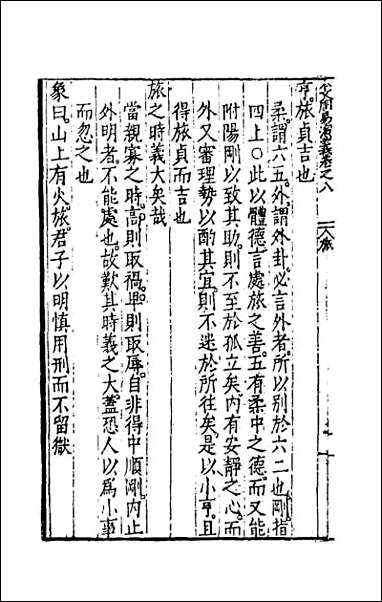 周易演義卷之八 一 旅
亨旅貞吉也
柔謂六五外謂外卦必言外者所以別於六二也剛指
四上○此以體德言處旅之善五有柔中之德而又能
附陽剛以致其助則不至於孤立矣内有安靜之心而
外又審理勢以酌其宜則不迷於所往矣是以小亨且
得旅貞而吉也
旅之時義大矣哉
當親寡之時高則取禍卑則取辱自非得中順剛内止
外明者不能處也故歎其時義之大蓋恐人以爲小事
而忽之也
象曰山上有火旅君子以明慎用刑而不留獄